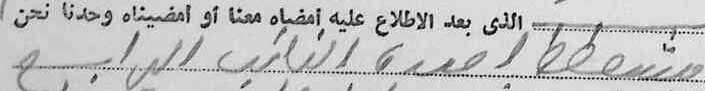 الذى بعد الاطلاع عليه أمضاه معنا أو امضيناه وحدنا نحن
النائب الرابع